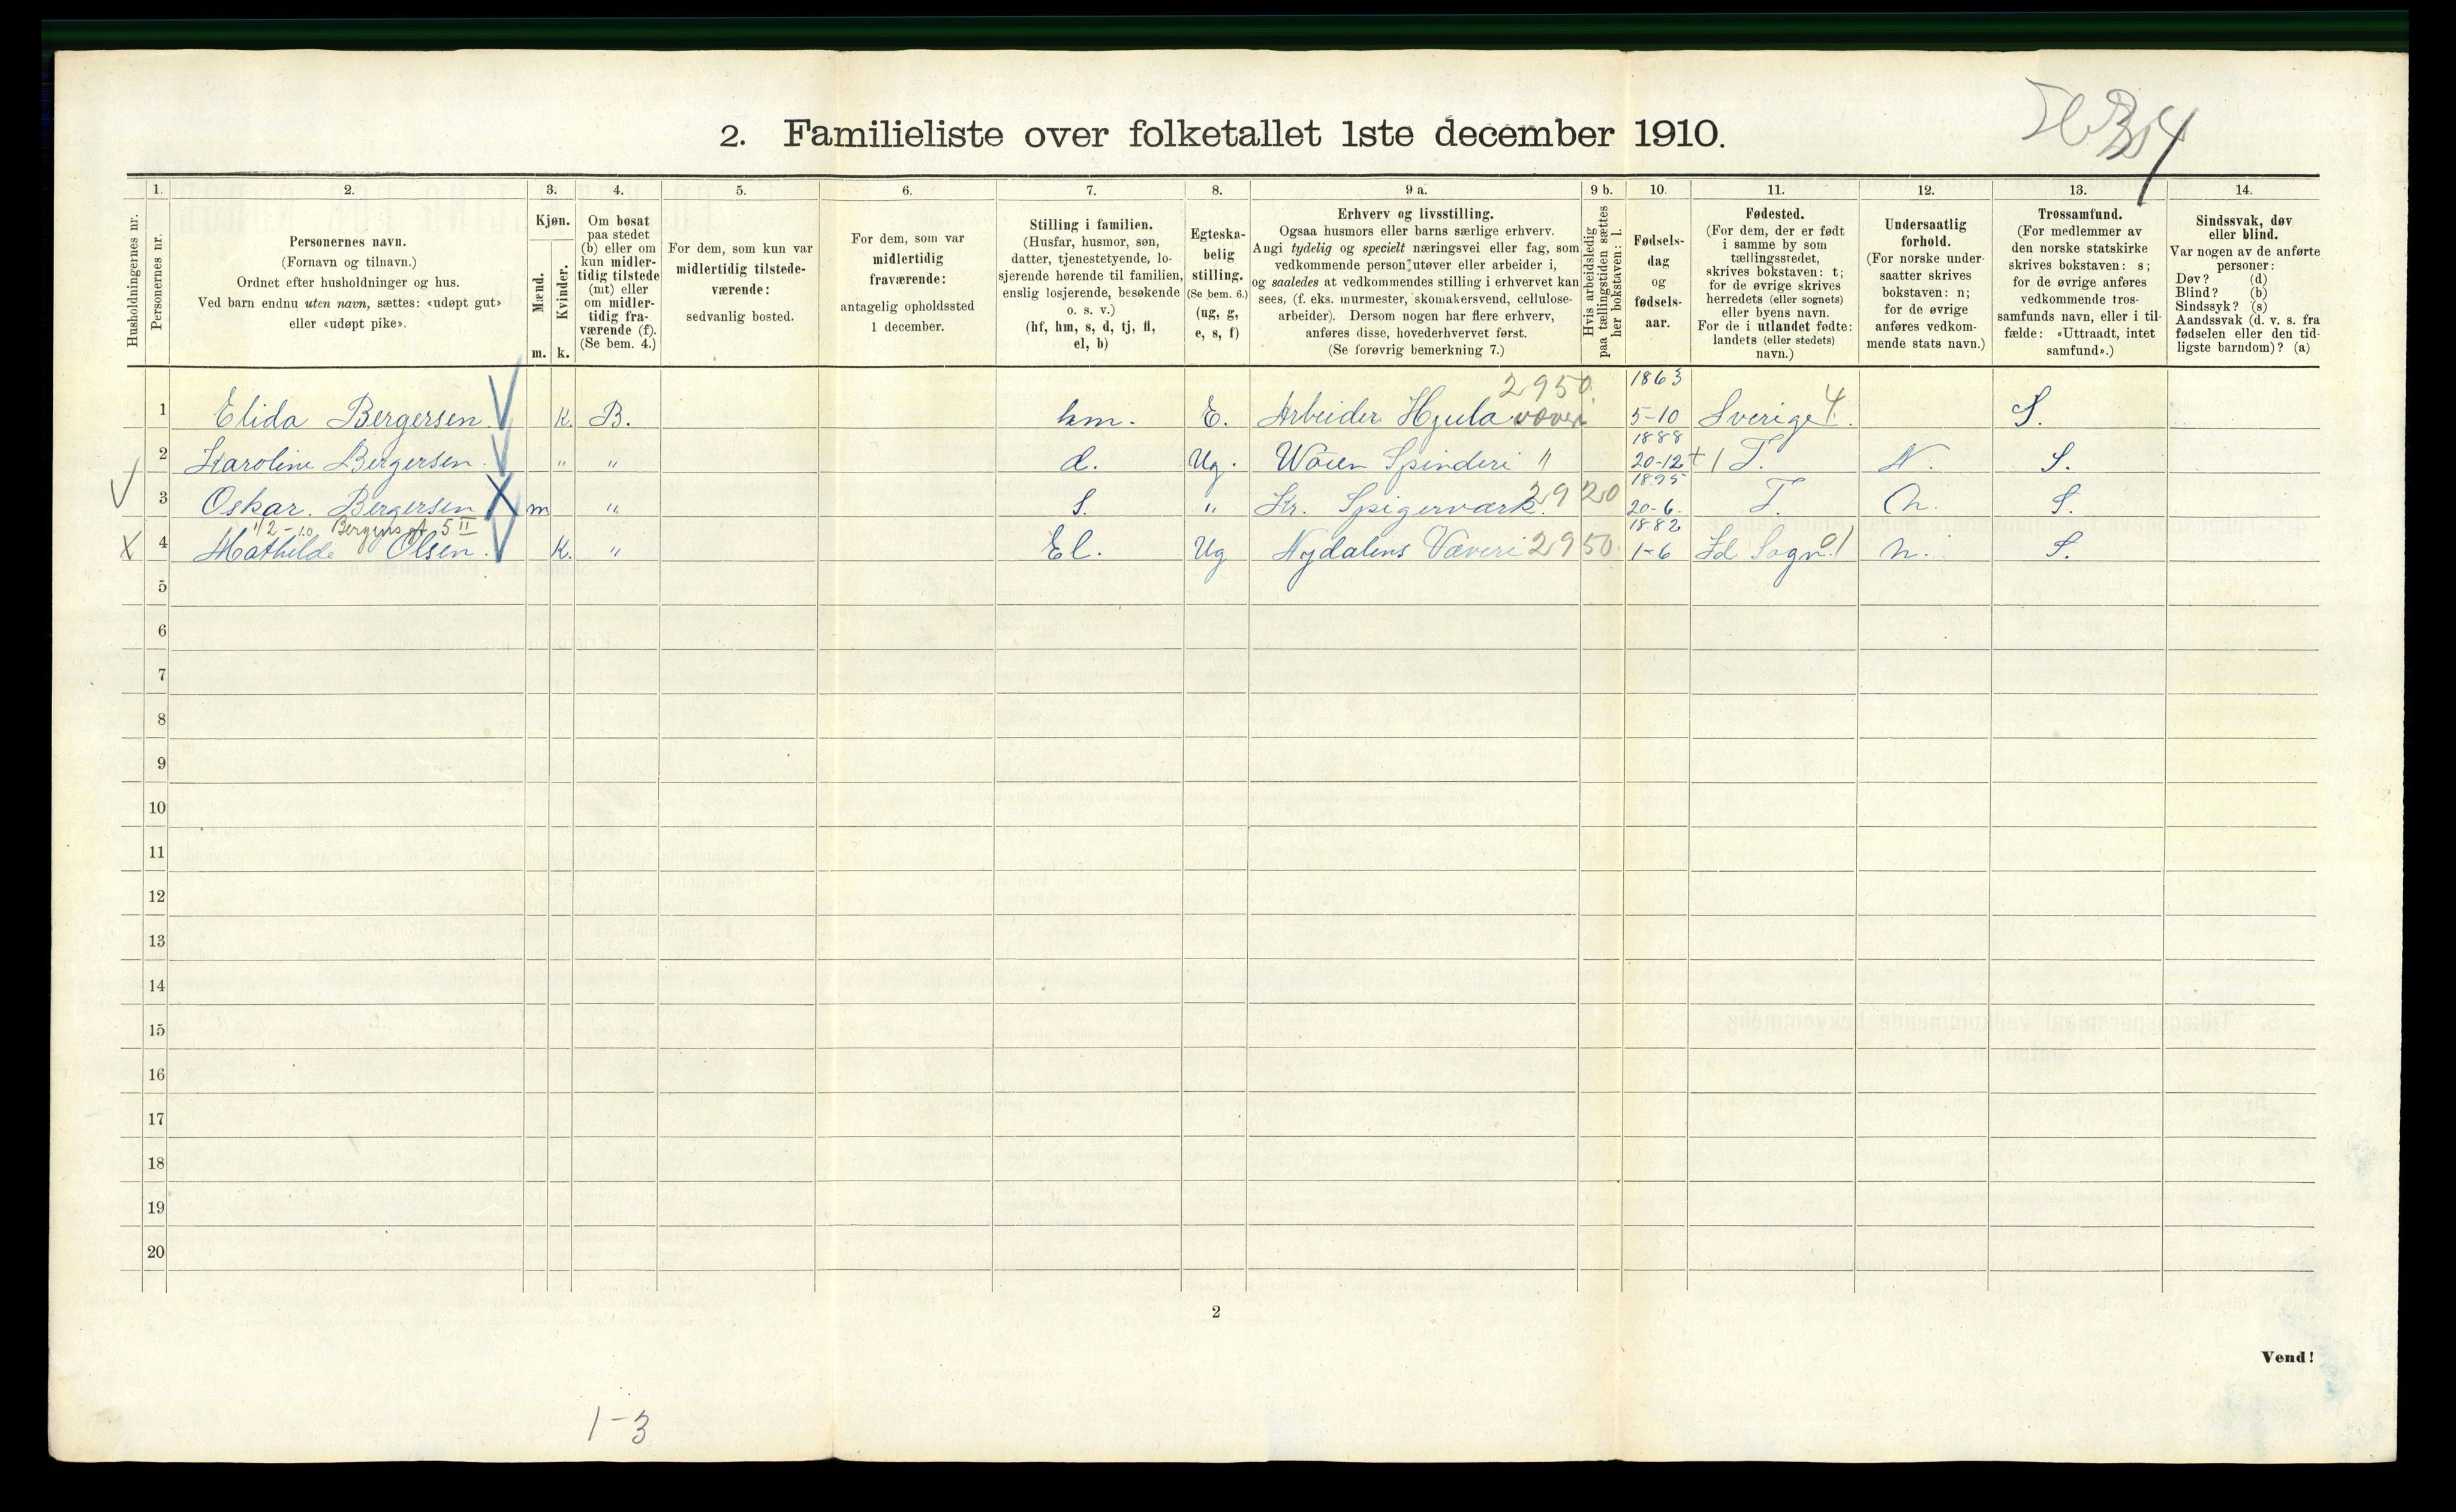 2. Familieliste over folketallet 1ste december 1910.
Husholdningernes nr.
1. Personernes nr.
2. Personernes navn. (Fornavn og tilnavn.) Ordnet efter husholdninger og hus. Ved barn endnu uten navn, sættes: «udøpt gut» eller «udøpt pike».
3. Kjøn. Mænd. m. Kvinder. k.
4. Om bosat paa stedet (b) eller om kun midlertidig tilstede (mt) eller om midlertidig fraværende (f). (Se bem. 4.)
5. For dem, som kun var midlertidig tilstedeværende: sedvanlig bosted.
6. For dem, som var midlertidig fraværende: antagelig opholdssted 1 december.
7. Stilling i familien. (Husfar, husmor, søn, datter, tjenestetyende, losjerende hørende til familien, enslig losjerende, besøkende o. s. v.) (hf, hm, s, d, tj, fl, el, b)
8. Egteskabelig stilling. (Se bem. 6.) (ug, g, e, s, f)
9 a. Erhverv og livsstilling. Ogsaa husmors eller barns særlige erhverv. Angi tydelig og specielt næringsvei eller fag, som vedkommende person utøver eller arbeider i, og saaledes at vedkommendes stilling i erhvervet kan sees, (f. eks. murmester, skomakersvend, cellulosearbeider). Dersom nogen har flere erhverv, anføres disse, hovederhvervet først. (Se forøvrig bemerkning 7.)
9 b. Hvis arbeidsledig paa tællingstiden sættes her bokstaven: l.
10. Fødselsdag og fødselsaar.
11. Fødested. (For dem, der er født i samme by som tællingsstedet, skrives bokstaven: t; for de øvrige skrives herredets (eller sognets) eller byens navn. For de i utlandet fødte: landets (eller stedets) navn.)
12. Undersaatlig forhold. (For norske undersaatter skrives bokstaven: n; for de øvrige anføres vedkommende stats navn.)
13. Trossamfund. (For medlemmer av den norske statskirke skrives bokstaven: s; for de øvrige anføres vedkommende trossamfunds navn, eller i tilfælde: «Uttraadt, intet samfund».)
14. Sindssvak, døv eller blind. Var nogen av de anførte personer: Døv? (d) Blind? (b) Sindssyk? (s) Aandssvak (d. v. s. fra fødselen eller den tidligste barndom)? (a)
2950. 1863
1 Elida Bergersen. K. B. hm. E. Arbeider Hjula væveri 5-10 Sverige 4. S.
1888
2 Karoline Bergersen. " " d. Ug. Wøien Spinderi " 20-12 + 1 T. N. S.
1895
3 Oskar. Bergersen m " S. " Kr. Spigerværk. 2920 20-6. T. n. S.
1/2-10 Bergensgt 5 II 1882
4 Mathilde Olsen. K. " El. Ug Nydalens Væveri 2950. 1-6 Id Sogn. 01 n. S.
5
6
7
8
9
10
11
12
13
14
15
16
17
18
19
20
2
Vend!
1-3